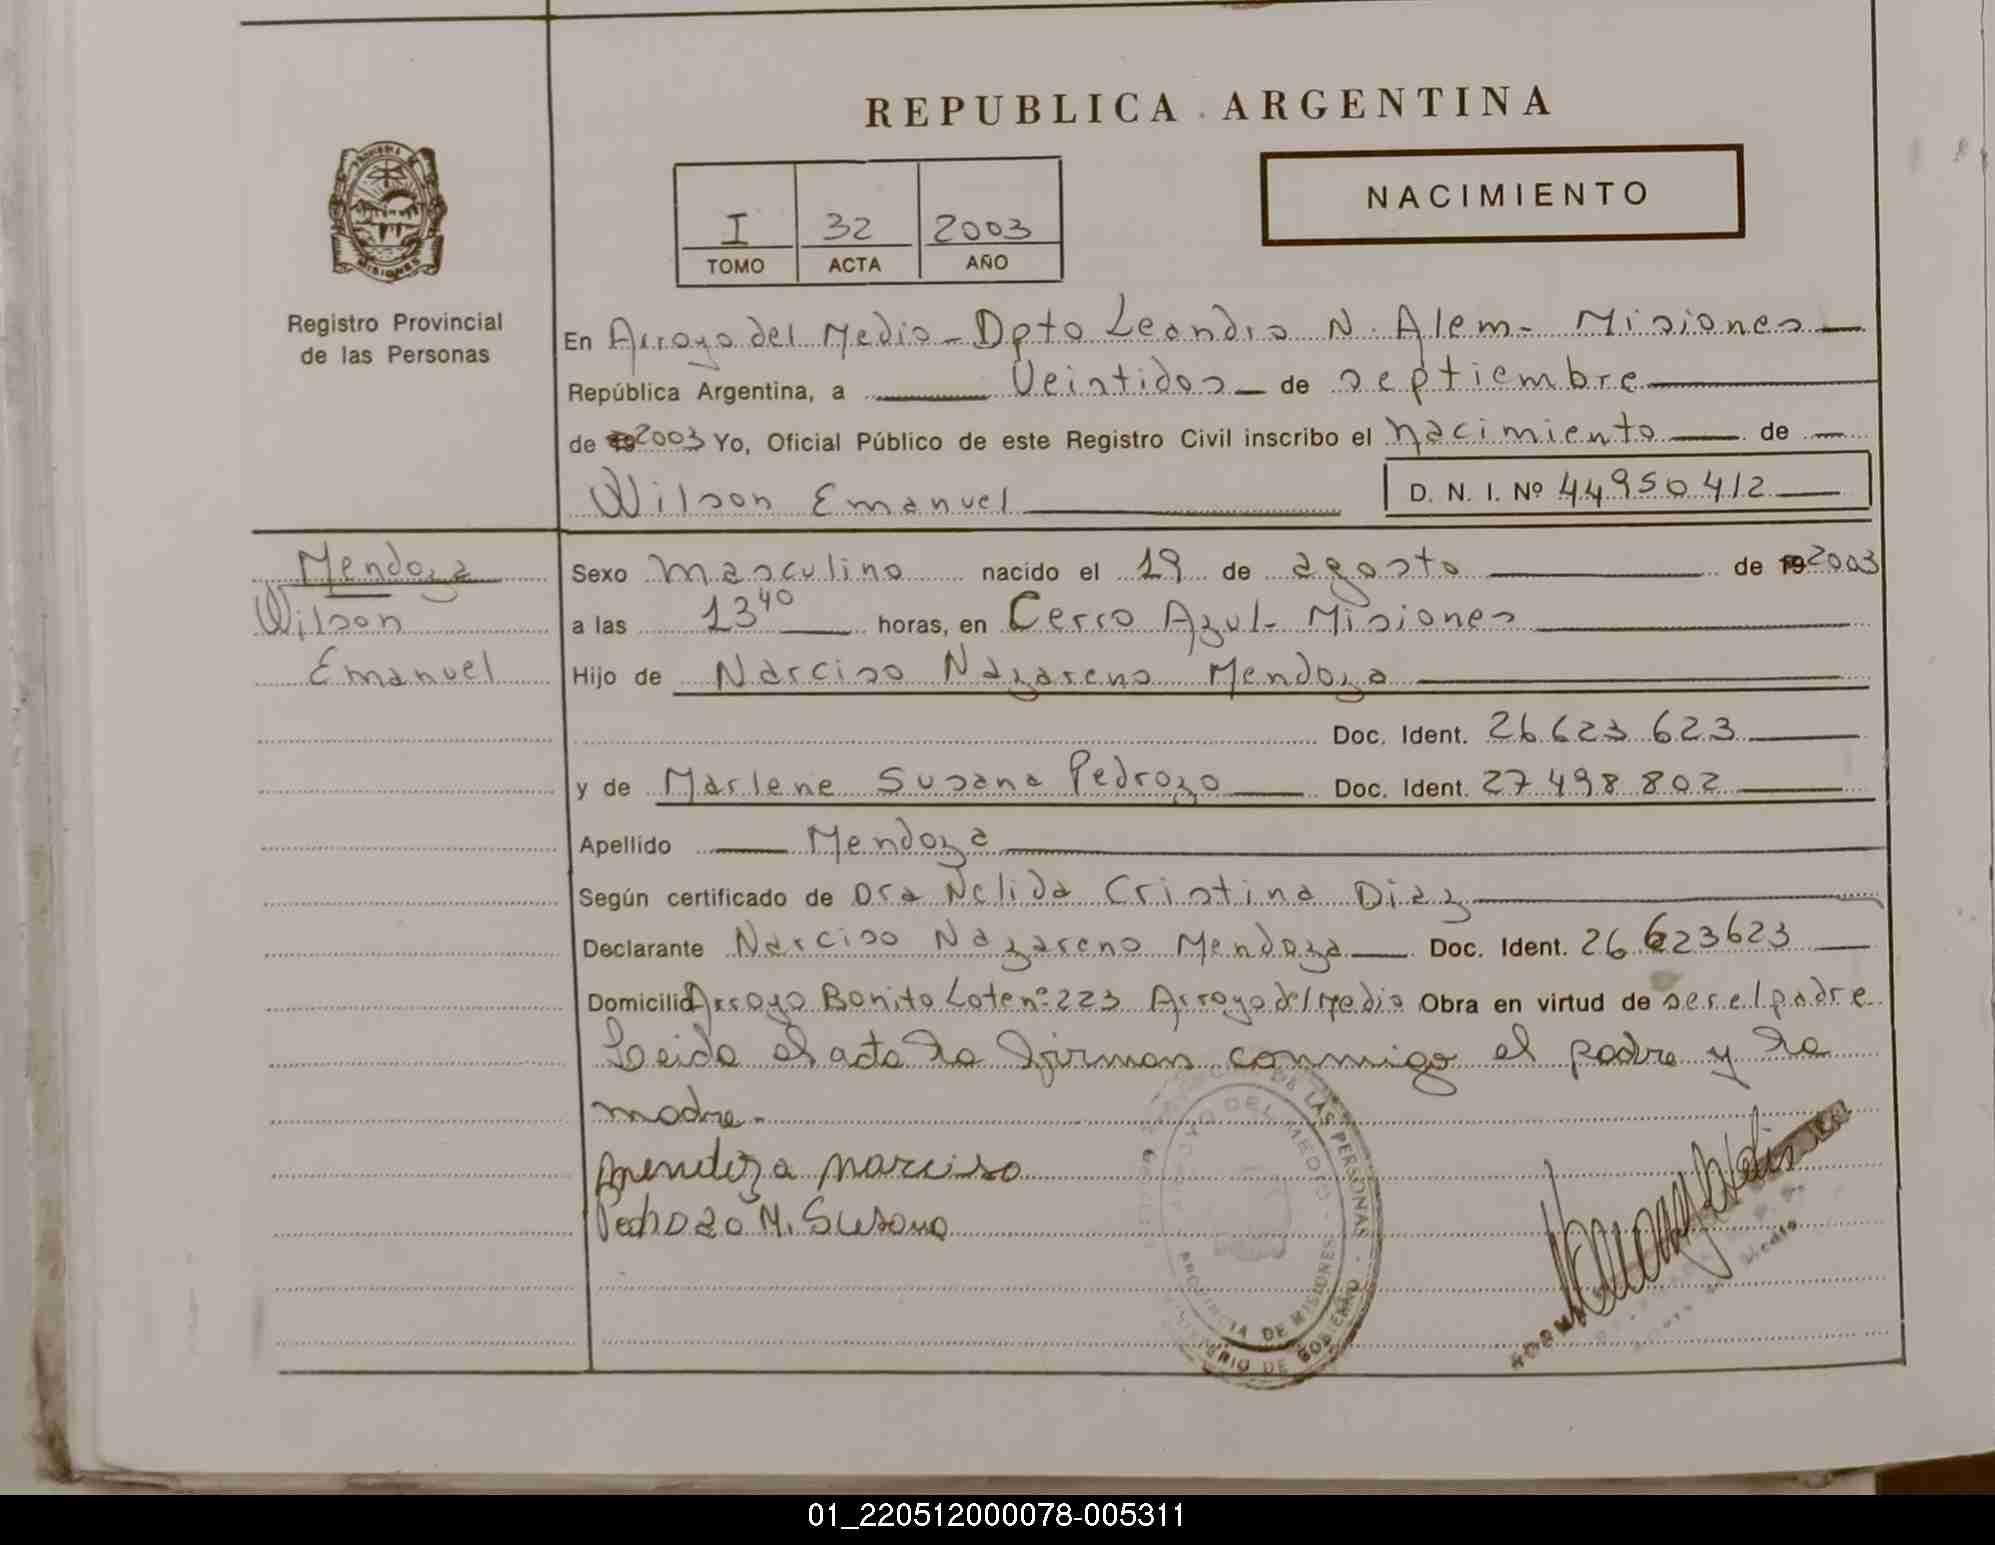 REPUBLICA ARGENTINA
NACIMIENTO
I 32 2003
TOMO ACTA AÑO
MISIONES
Registro Provincial
de las Personas
En Arroyo del Medio - Dpto Leandro N. Alem - Misiones
República Argentina, a Veintidos de septiembre
de 19 2003 Yo, Oficial Público de este Registro Civil inscribo el nacimiento de
Wilson Emanuel D. N. I. Nº 44950412
Mendoza
Wilson
Emanuel
Sexo masculino nacido el 19 de agosto de 19 2003
a las 13 40 horas, en Cerro Azul - Misiones
Hijo de Narciso Nazareno Mendoza
Doc. Ident. 26.623.623
y de Marlene Susana Pedrozo Doc. Ident. 27.498.802
Apellido Mendoza
Según certificado de Dra Nelida Cristina Diaz
Declarante Narciso Nazareno Mendoza Doc. Ident. 26 623623
Domicilio Arroyo Bonito Lote nº 223 Arroyo del Medio Obra en virtud de ser el padre
Leida el acta la firman conmigo el padre y la
madre.-
Mendoza Narciso
Pedrozo M. Susana
DE LAS PERSONAS
ARROYO DEL MEDIO
PROVINCIA DE MISIONES
MINISTERIO DE GOBIERNO
01_220512000078-005311